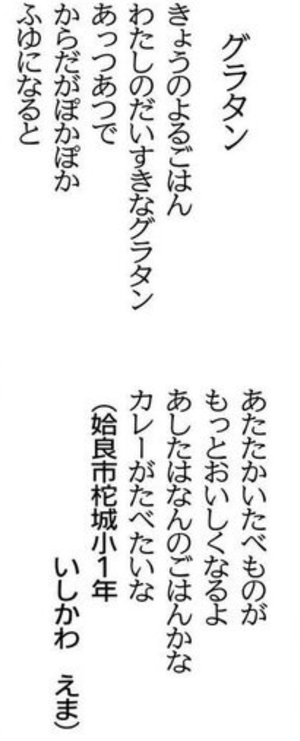 グラタン
きょうのよるごはん
わたしのだいすきなグラタン
あっつあつで
からだがぽかぽか
ふゆになると
あたたかいたべものが
もっとおいしくなるよ
あしたはなんのごはんかな
カレーがたべたいな
（姶良市柁城小１年
いしかわ　えま）